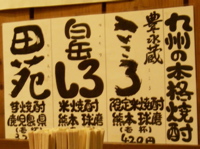 九州の本格焼酎
豊永蔵
こころ
限定米焼酎
熊本 球磨
420円
白岳
しろ
米焼酎
熊本 球磨
田苑
芋焼酎
鹿児島県